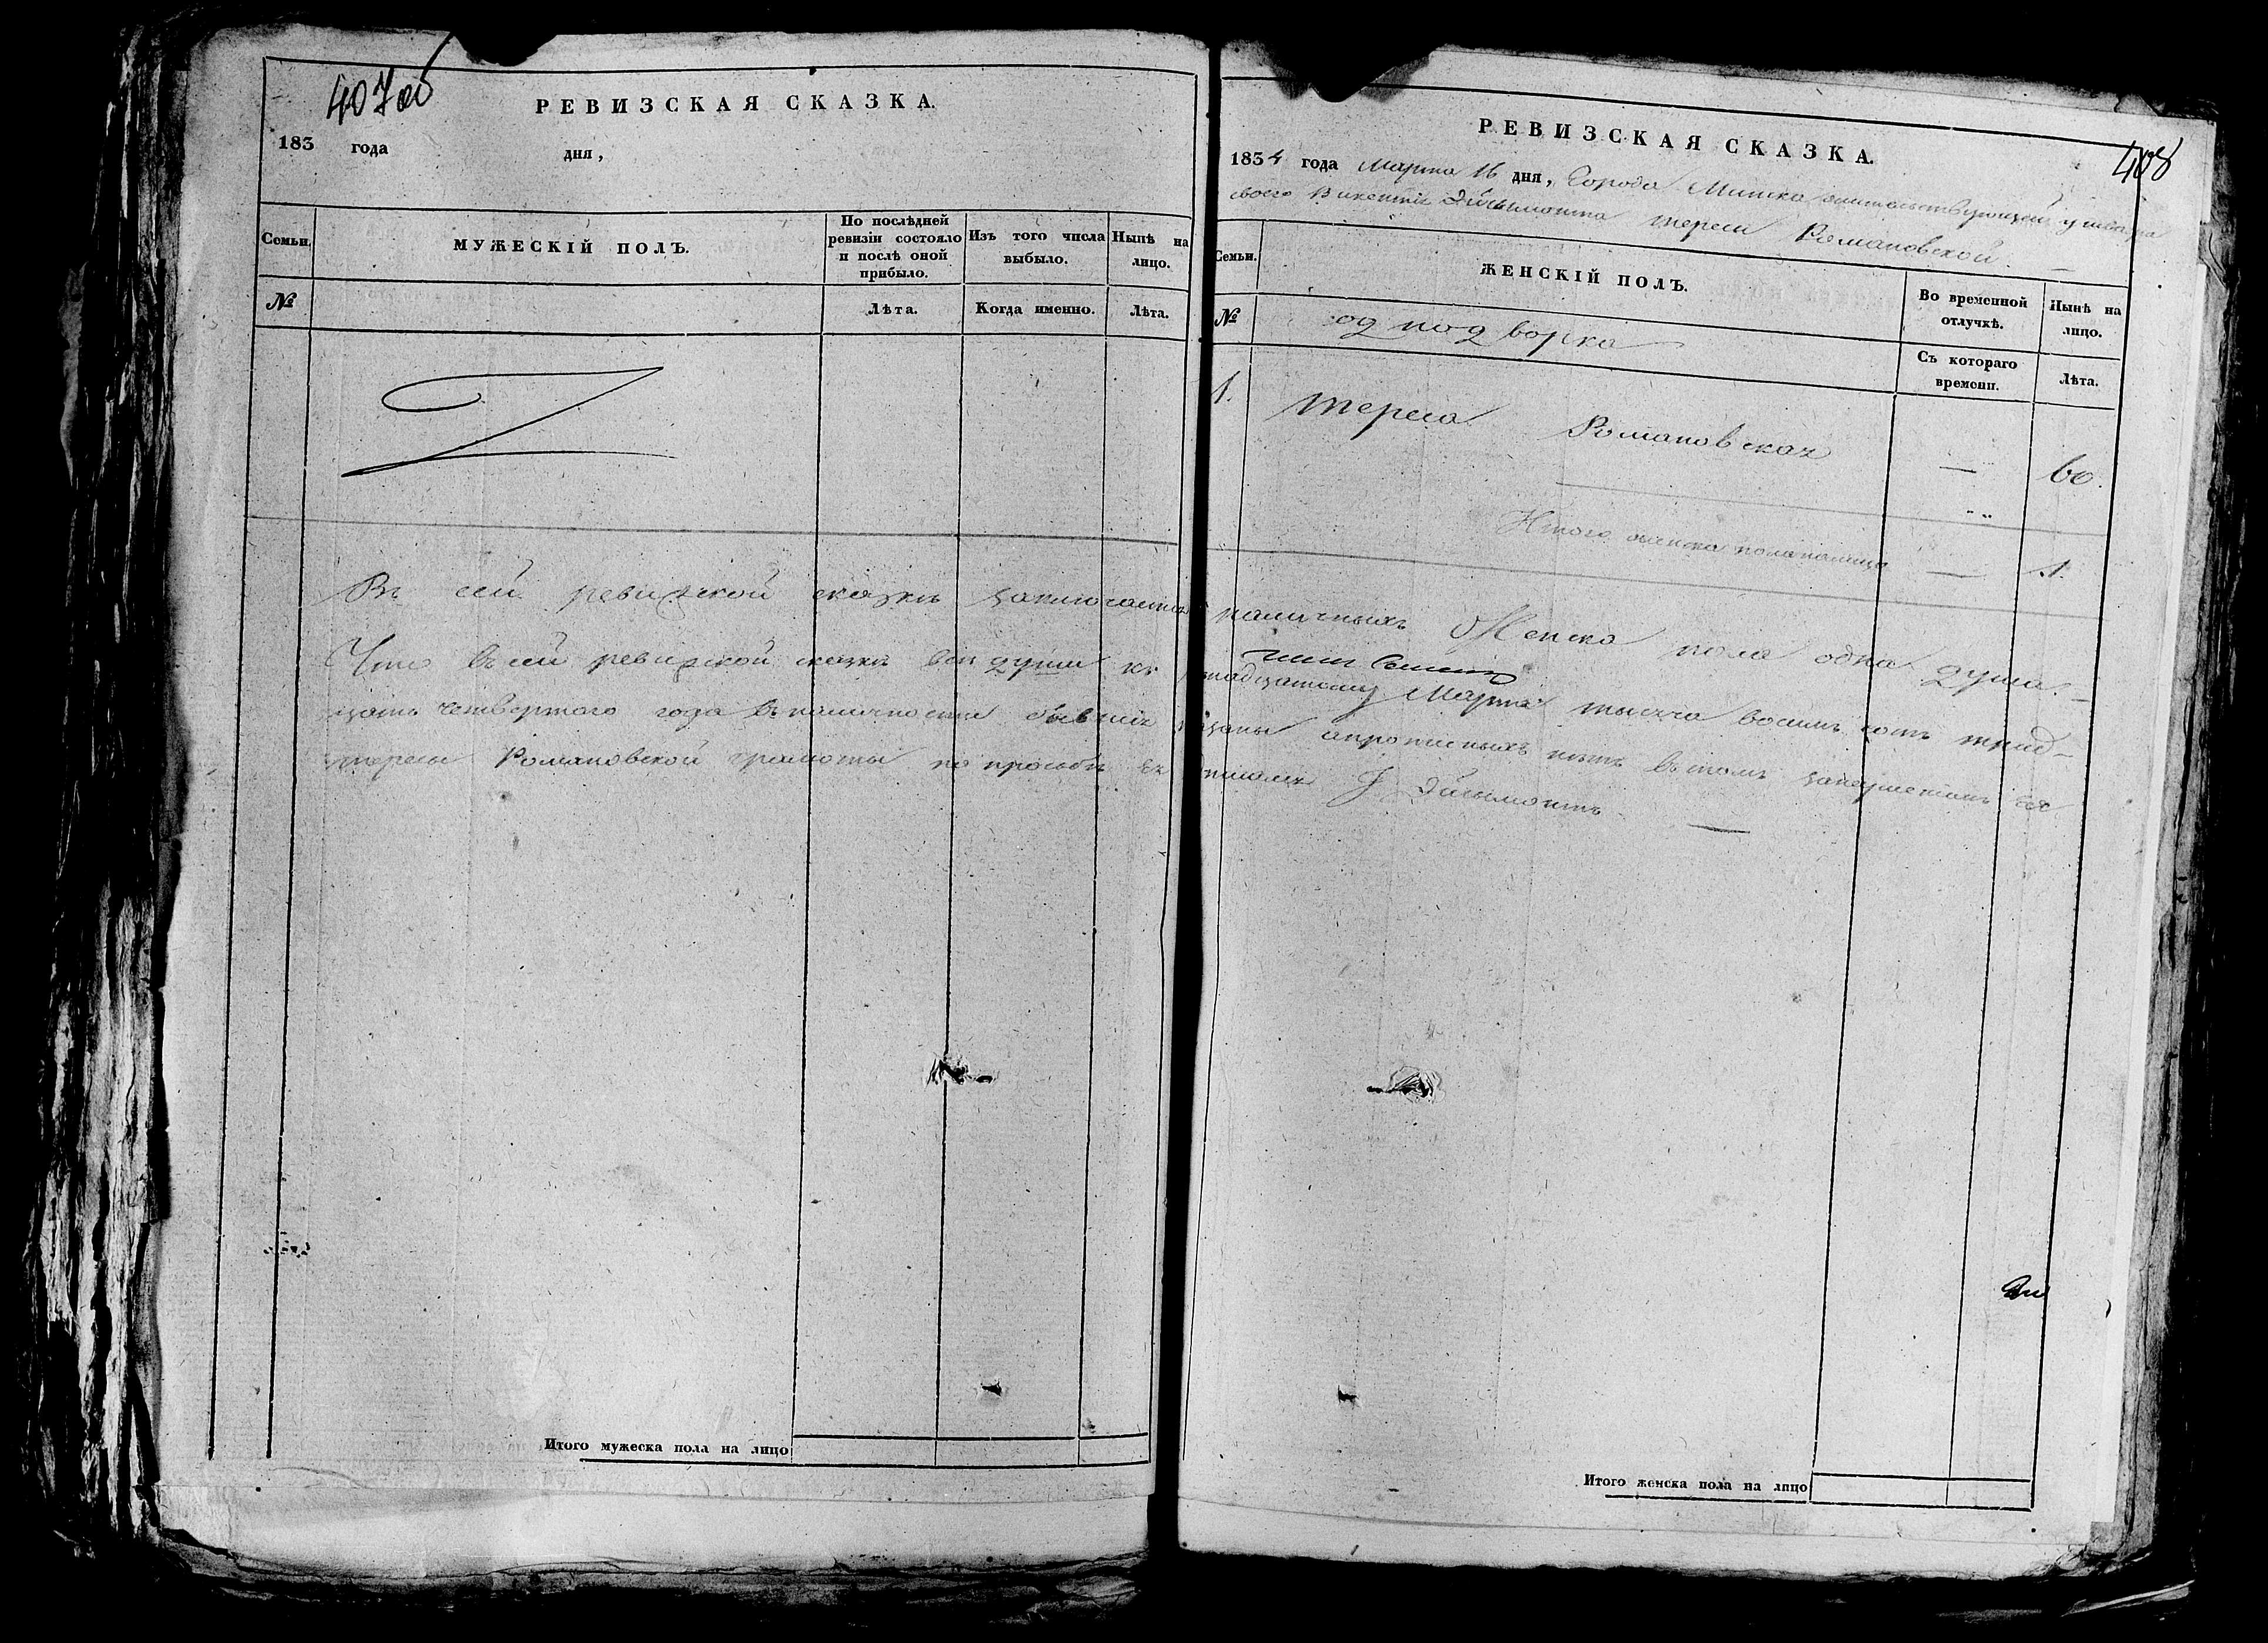 407 об
РЕВИЗСКАЯ СКАЗКА.
183 года дня,
Семьи.
МУЖЕСКІЙ ПОЛЪ.
По послѣдней ревизіи состояло и послѣ оной прибыло.
Изъ того числа выбыло.
Нынѣ на лицо.
№
Лѣта.
Когда именно.
Лѣта.
Итого мужеска пола на лицо
408
РЕВИЗСКАЯ СКАЗКА.
1834 года Марта 16 дня, Города Минска жительствующей у
своего Викентія Эйсымонта Тересы Романовской
Семьи.
ЖЕНСКІЙ ПОЛЪ.
Во временной отлучкѣ.
Нынѣ на лицо.
№
одподворка
Съ котораго времени.
Лѣта.
1. Тереса Романовская — 60.
Итого женска пола налицо — 1.
Въ сей ревизской сказкѣ заключается наличныхъ Женска пола одна душа.
Что въ сей ревизской сказкѣ всѣ души къ надцатому Марта тысяча восемь сотъ трид-
цать четвертаго года въ наличности бывшіе показаны а прописныхъ нѣтъ въ томъ
Тересы Романовской грамоты по прозьбѣ Эйсымонтъ
Итого женска пола на лицо